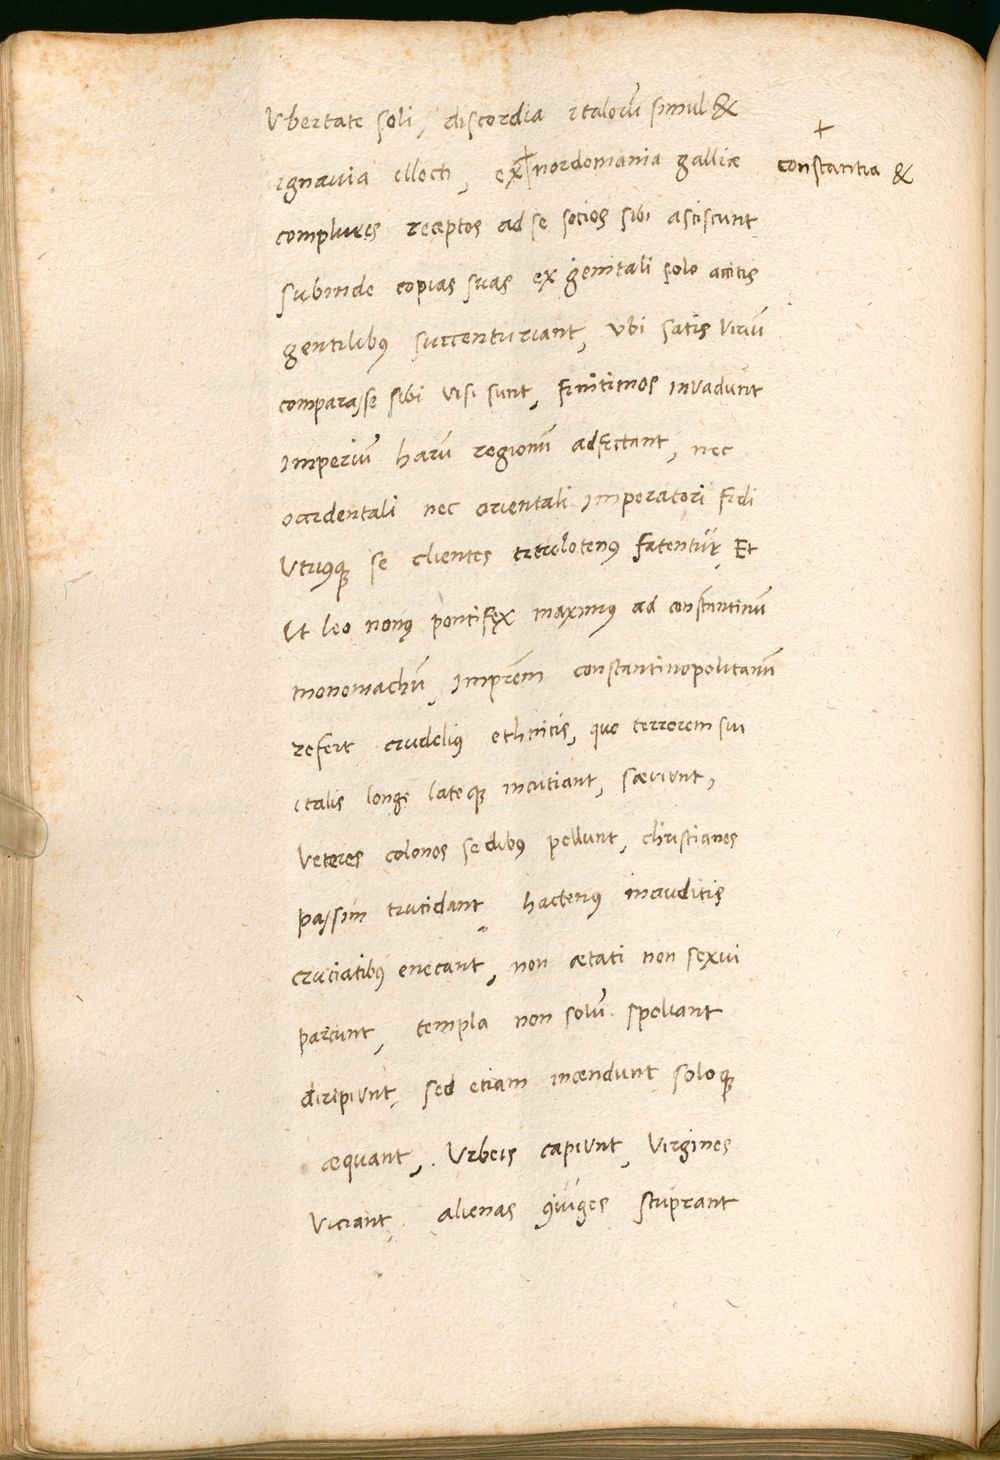 Vbertate soli, discordia italorũ simul &
ignauia illecti, ex + nordomania galliæ
+ constantia &
complures receptos ad se socios sibi asciscunt
subinde copias suas ex genitali solo accitis
gentilibꝰ succenturiant, vbi satis viriũ
comparasse sibi visi sunt, finitimos inuadunt
imperiũ harũ regionũ adfectant, nec
occidentali nec orientali imperatori fidi
vtriusqꝫ se clientes titulotenꝰ fatentur, Et
Vt leo nonꝰ pontifex maximꝰ ad constantinũ
monomachũ, Imp̃rem constantinopolitanũ
refert crudeliꝰ ethnicis, quo terrorem sui
italis longe lateqꝫ incutiant, sæviunt,
veteres colonos sedibꝰ pellunt, christianos
passim trucidant, hactenꝰ inauditis
cruciatibꝰ enecant, non ætati non sexui
parcunt, templa non solũ spoliant
diripiunt, sed etiam incendunt soloqꝫ
æquant, Vrbeis capiunt, virgines
viciant, alienas ꝯiuges stuprant